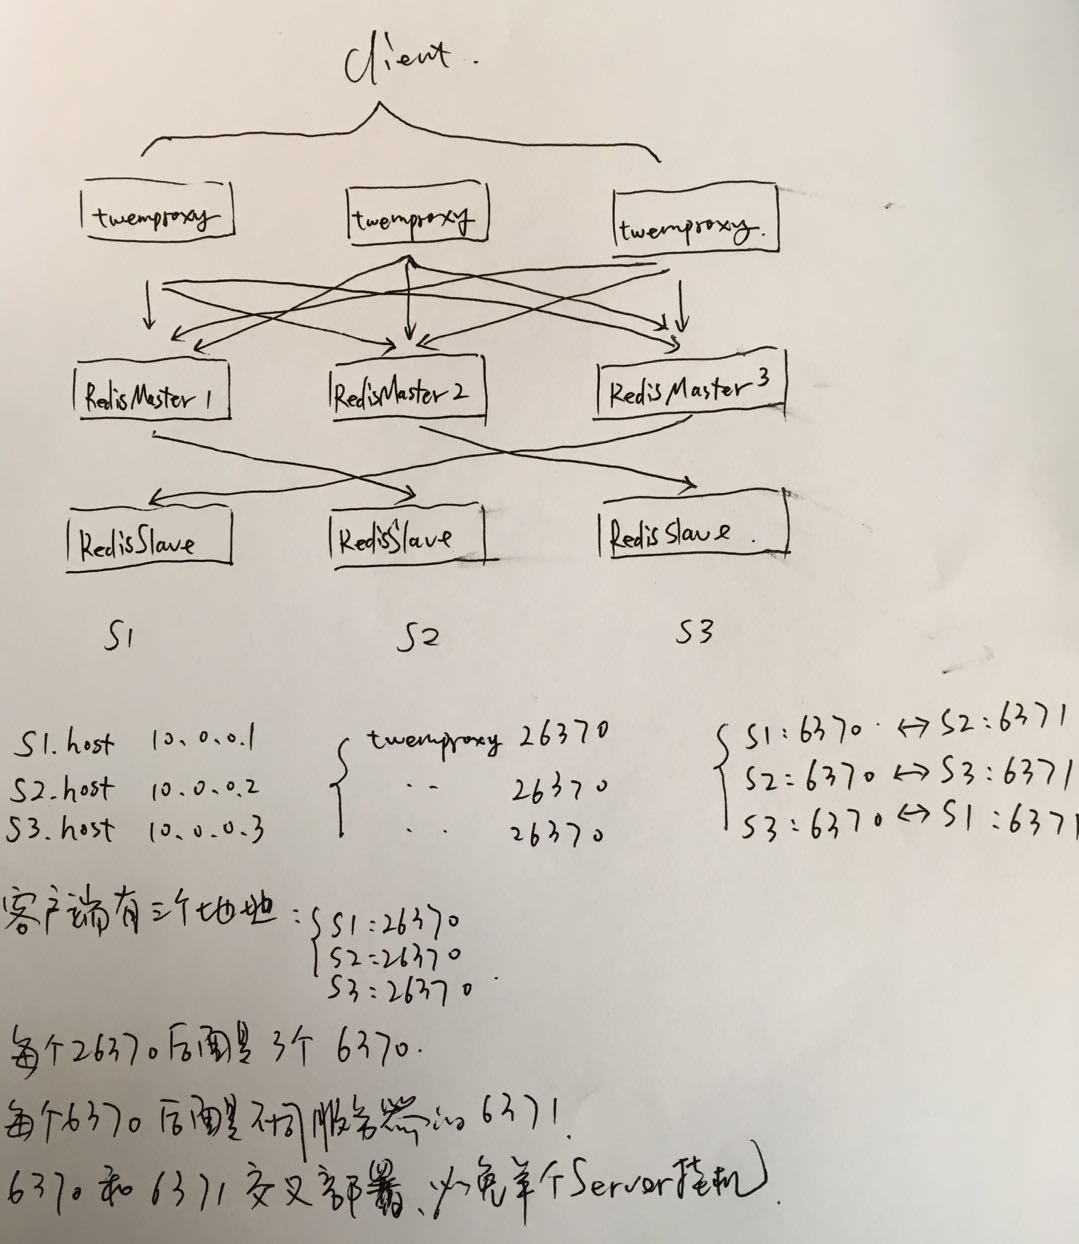 Client.
twemproxy twemproxy twemproxy.
RedisMaster 1 RedisMaster 2 RedisMaster 3
RedisSlave RedisSlave RedisSlave.
S1 S2 S3
S1.host 10.0.0.1 twemproxy 26370 S1:6370 ↔ S2:6371
S2.host 10.0.0.2 .. 26370 S2:6370 ↔ S3:6371
S3.host 10.0.0.3 .. 26370 S3:6370 ↔ S1:6371
客户端有三个地址: S1:26370
S2:26370
S3:26370.
每个26370后面是3个6370.
每个6370后面是不同服务器的6371.
6370和6371交叉部署、以免单个Server挂机.